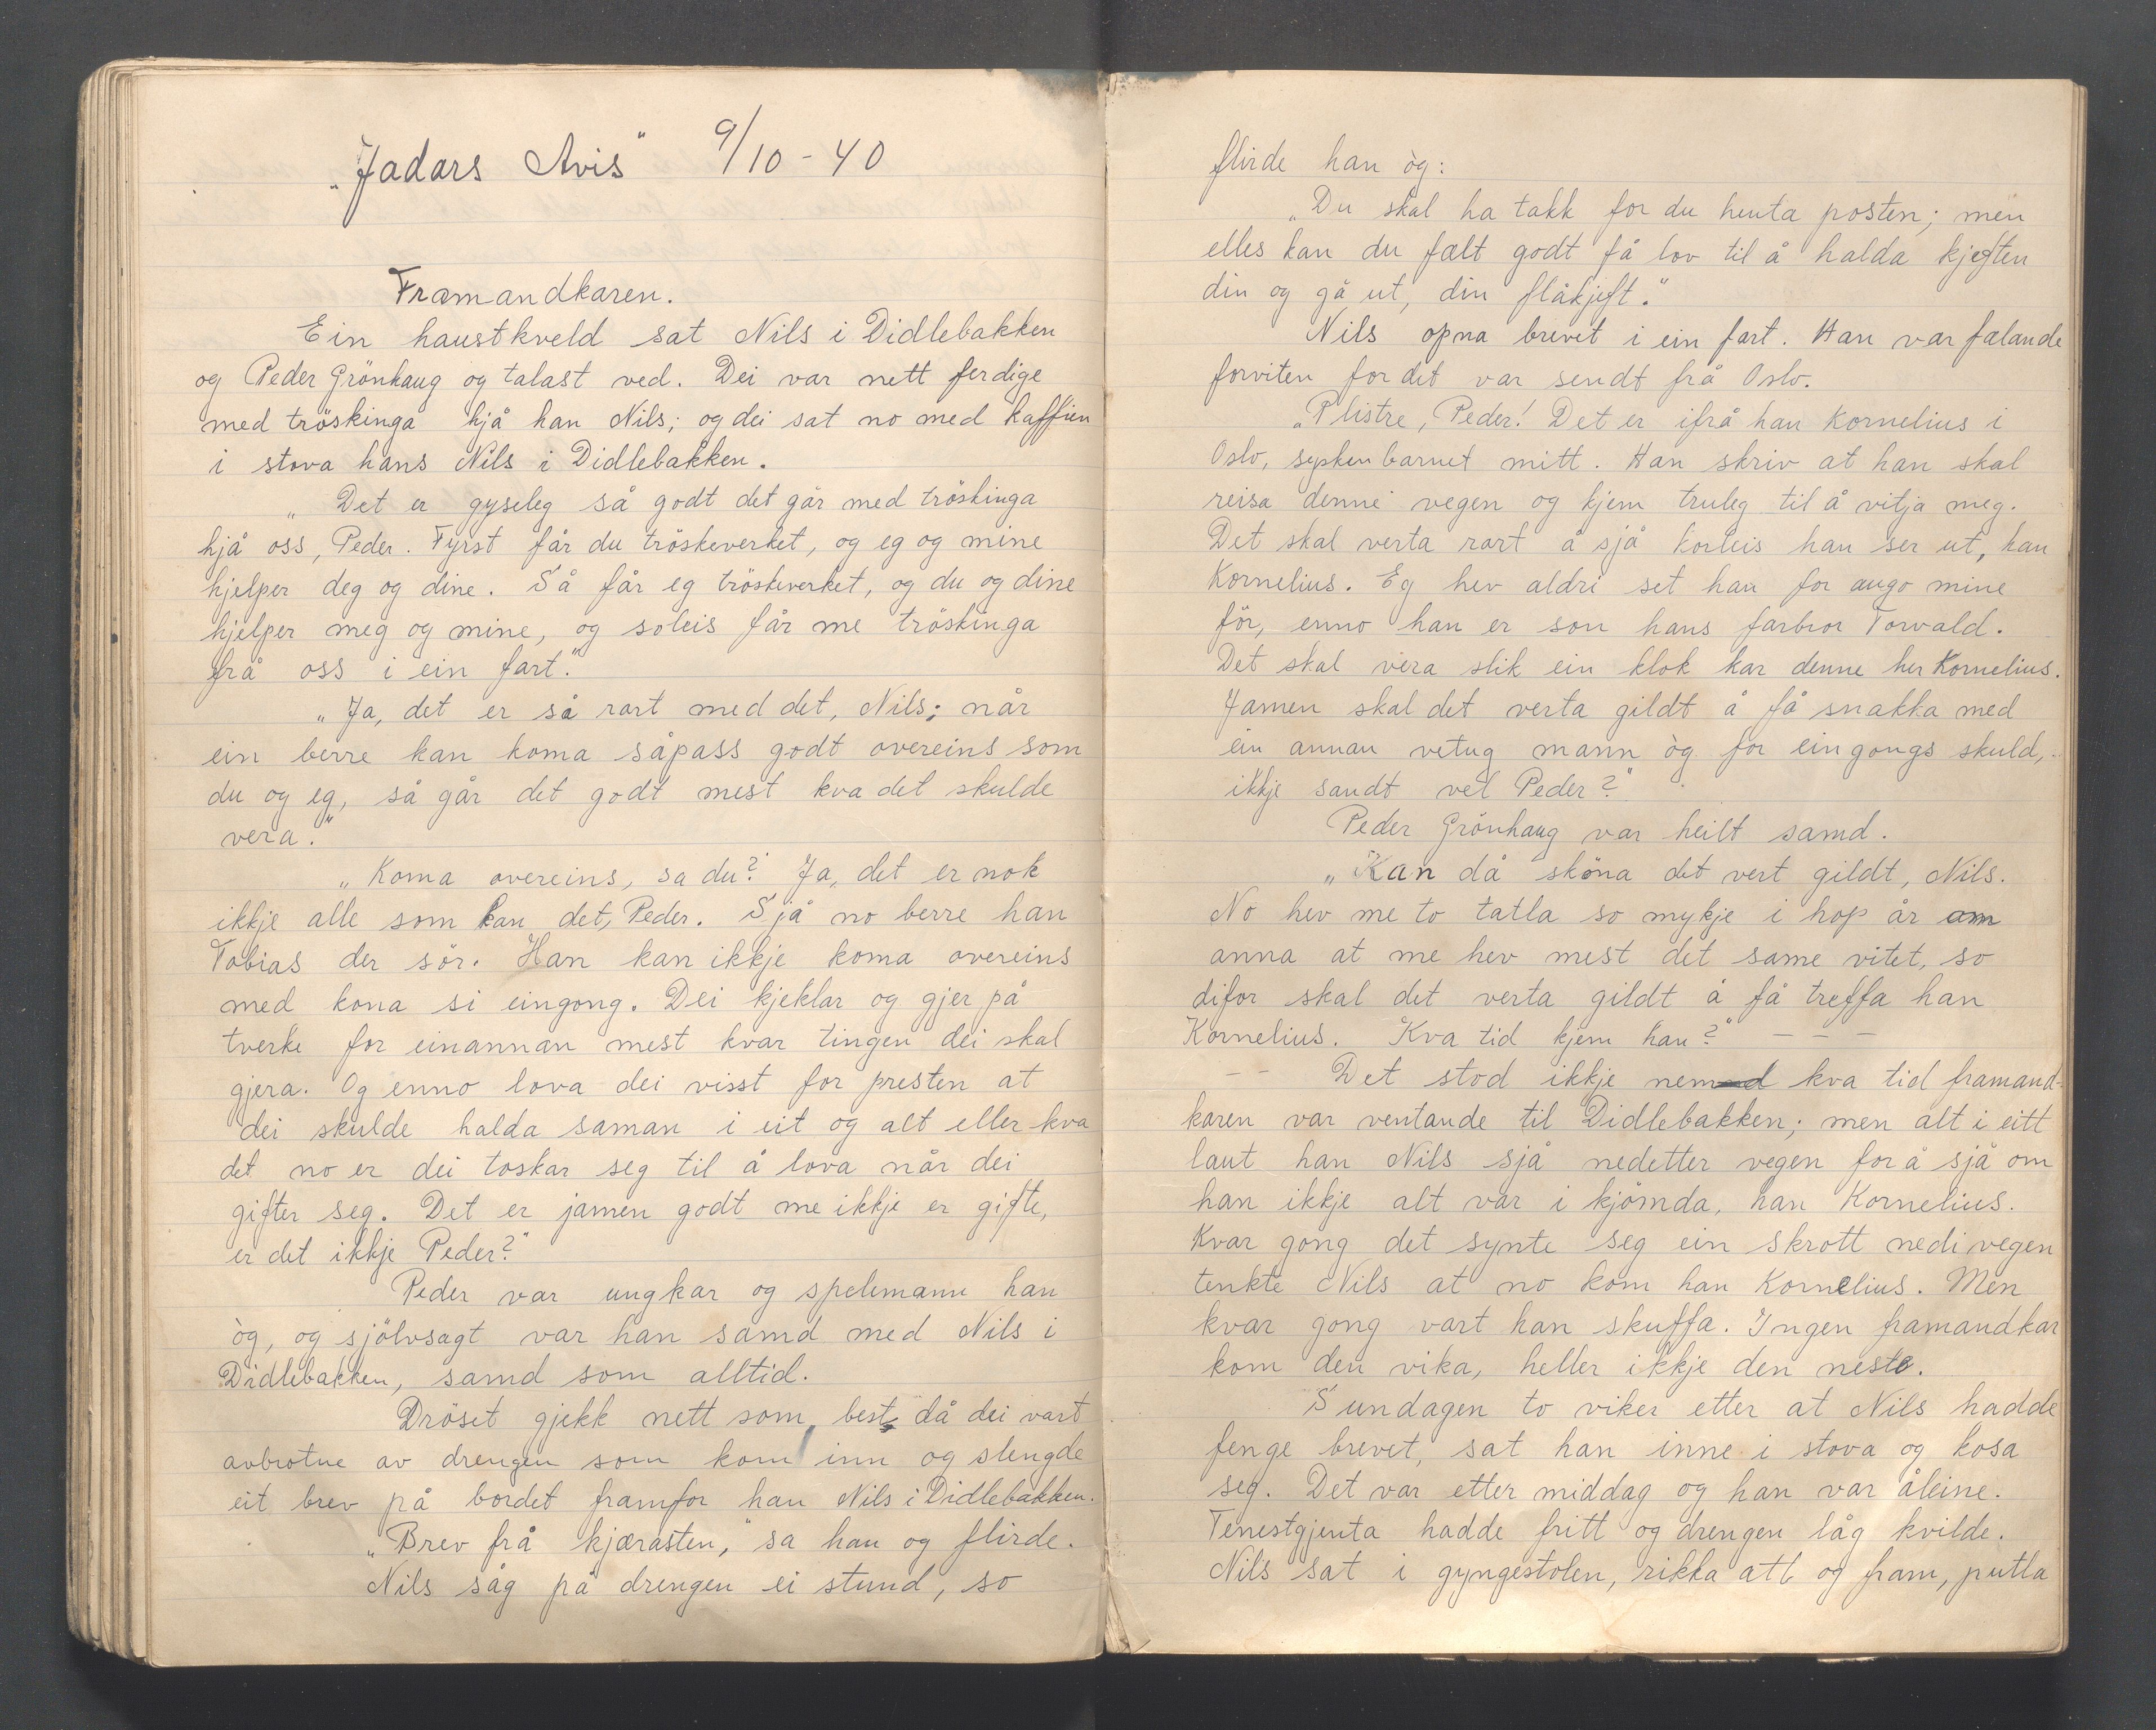 „Jadars Avis" 9/10-40
Framandkaren.
Ein haustkveld sat Nils i Didlebakken
og Peder Grönhaug og talast ved. Dei var nett ferdige
med tröskinga hjå han Nils; og dei sat no med kaffien
i stova hans Nils i Didlebakken.
„Det er gyseleg så godt det går med tröskinga
hjå oss, Peder. Fyrst får du tröskeverket, og eg og mine
hjelper deg og dine. Så får eg tröskeverket, og du og dine
hjelper meg og mine, og soleis får me tröskinga
frå oss i ein fart."
„Ja, det er så rart med det, Nils; når
ein berre kan koma såpass godt overeins som
du og eg, så går det godt mest kva det skulde
vera."
„Koma overeins, sa du? Ja, det er nok
ikkje alle som kan det, Peder. Sjå no berre han
Tobias der sör. Han kan ikkje koma overeins
med kona si eingong. Dei kjeklar og gjer på
tverke for einannan mest kvar tingen dei skal
gjera. Og enno lova dei visst for presten at
dei skulde halda saman i eit og alt eller kva
det no er dei toskar seg til å lova når dei
gifter seg. Det er jamen godt me ikkje er gifte,
er det ikkje Peder?"
Peder var ungkar og spelemann han
òg, og sjölvsagt var han samd med Nils i
Didlebakken, samd som alltid.
Dröset gjekk nett som best då dei vart
avbrotne av drengen som kom inn og slengde
eit brev på bordet framfor han Nils i Didlebakken.
„Brev frå kjærasten," sa han og flirde.
Nils såg på drengen ei stund, so
flirde han òg:
„Du skal ha takk for du henta posten; men
elles kan du fælt godt få lov til å halda kjeften
din og gå ut, din flåkjeft."
Nils opna brevet i ein fart. Han var fælande
forviten for dit var sendt frå Oslo.
„Plistre, Peder! Det er ifrå han Kornelius i
Oslo, syskenbarnet mitt. Han skriv at han skal
reisa denne vegen og kjem truleg til å vitja meg.
Det skal verta rart å sjå korleis han ser ut, han
Kornelius. Eg hev aldri set han for augo mine
för, enno han er son hans farbror Torvald.
Det skal vera slik ein klok kar denne her Kornelius.
Jamen skal det verta gildt å få snakka med
ein annan vetug mann òg for ein gongs skuld,
ikkje sandt vel Peder?"
Peder Grönhaug var heilt samd.
„Kan då sköna det vert gildt, Nils.
No hev me to tatla so mykje i hop år om
anna at me hev mest det same vitet, so
difor skal det verta gildt å få treffa han
Kornelius. Kva tid kjem han?" – – –
– – Det stod ikkje nemnd kva tid framand-
karen var ventande til Didlebakken; men alt i eitt
laut han Nils sjå nedetter vegen for å sjå om
han ikkje alt var i kjömda, han Kornelius.
Kvar gong det synte seg ein skrott nedi vegen
tenkte Nils at no kom han Kornelius. Men
kvar gong vart han skuffa. Ingen framandkar
kom den vika, heller ikkje den neste.
Sundagen to viker etter at Nils hadde
fenge brevet, sat han inne i stova og kosa
seg. Det var etter middag og han var åleine.
Tenestgjenta hadde fritt og drengen låg kvilde.
Nils sat i gyngestolen, rikka att og fram, putla